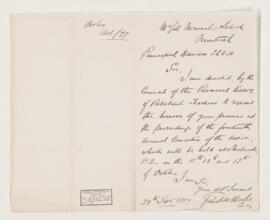 McGill Normal School
Montreal
Principal Dawson LLD
Sir,
I am directed by the
Council of the Provincial Assoc
of Protestant Teachers to request
the honour of your presence at
the proceedings of the fourteenth
Annual Convention of the Assoc.
which will be held at
P.Q. on the 11th 12th and 13th
of October.
I am Sir,
Your obt Servant
29th Sept 1877
Oct/77